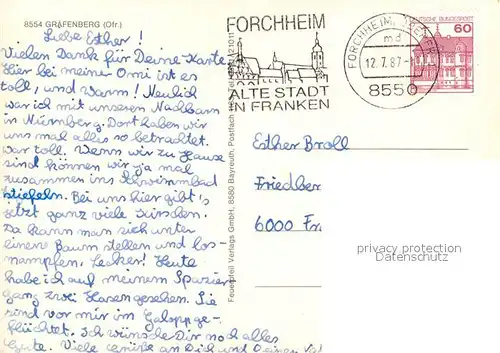 8554 GRÄFENBERG (Ofr.)
Liebe Esther!
Vielen Dank für Deine Karte.
Hier bei meiner Omi ist es
toll, und warm! Neulich
war ich mit unseren Nachbarn
in Nürnberg. Dort haben wir
uns mal alles so betrachtet.
war toll. Wenn wir zu Hause
sind können wir ja mal
zusammen ins Schwimmbad
stiefeln. Bei uns hier gibt's
jetzt ganz viele Kirschen.
Da kann man sich unter
einen Baum stellen und los-
mampfen. Lecker! Heute
habe ich auf meinem Spazier
gang zwei Hasen gesehen. Sie
sind vor mir im Galopp ge-
flüchtet. Ich wünsche Dir noch alles
Gute. Viele Grüße an Dich und Deinen
Feuerpfeil Verlags GmbH, 8580 Bayreuth, Postfach
FORCHHEIM
ALTE STADT
IN FRANKEN
FORCHHEIM,
md
12.7.87
8550
DEUTSCHE BUNDESPOST
60
Esther Broll
Friedber
6000 Fr
privacy protection
Datenschutz